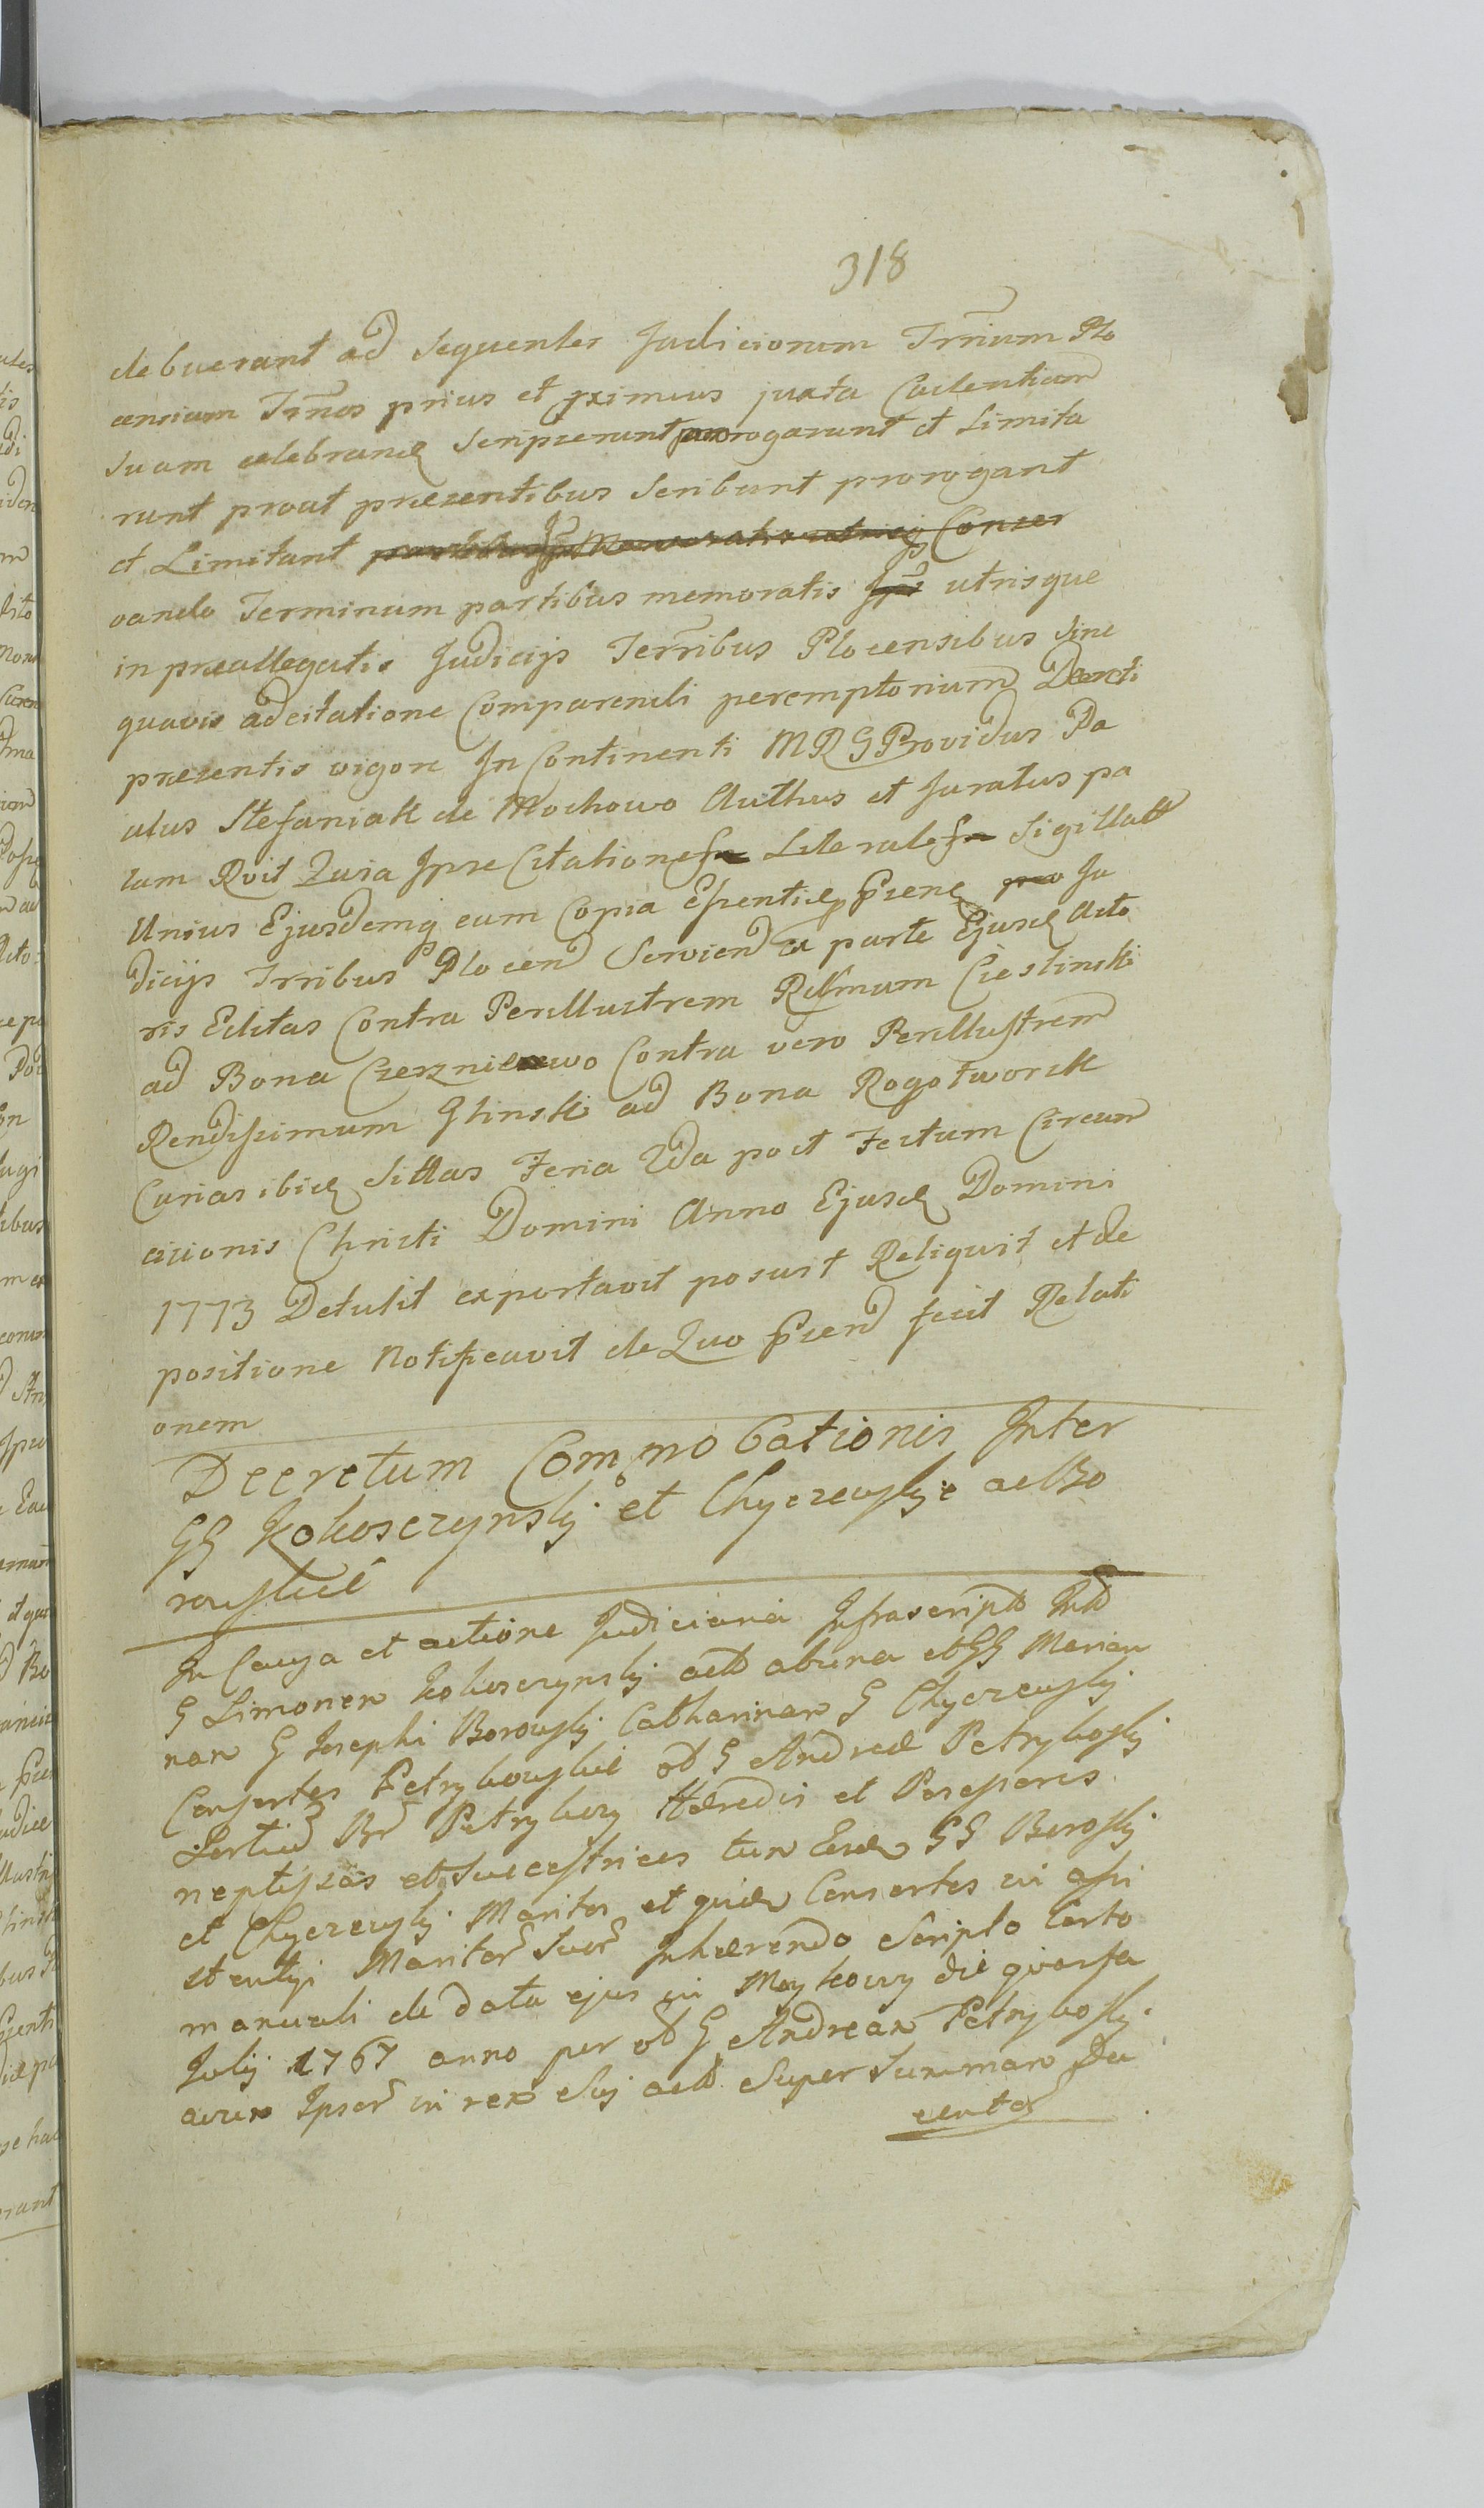 318
debuerant ad Sequentes Judiciorum Trrium Plo
censium Trnos prius et pximius juxta Cadentiam
Suam celebrand Scripserunt prorogarunt et Limita
runt prout praesentibus Scribunt prorogant
et Limitant partibus Memoratis utrisq Conser
vando Terminum partibus memoratis Ips utrisque
in preallegatis Judicijs Terribus Plocensibus Sine
quavis adcitatione Comparendi peremptorium Decreti
praesentis vigore In Continenti MRG Providus Pa
ulus Stefaniak de Mochowo Authus et Juratus pa
lam Rvit Quia Ipse Citationes Literales Sigillatt
Unius Ejusdemq cum Copia Essentiae Psene pro Ju
dicijs Trribus Plocend Serviend ex parte Ejusd Acto
ris Editas Contra Perillustrem Rdssmum Ciestinski
ad Bona Czerzniewo Contra vero Perillustrem
Rendissimum Glinski ad Bona Rogotworsk
Curias ibid Sittas Feria 2da post Festum Circum
cisionis Christi Domini Anno Ejusd Domini
1773 Detulit exportavit posuit Reliquit et de
positione Notificavit de Quo Psend fecit Relati
onem
Decretum Commprobationis Inter
GG Kokoszczynskj et Chyczewskje ac Bo
rowskie
In Causa et actione Judiciaria Infrascripto Intd
G Simonem Kokoszczynskj actt ab una et GG Marian
nan G Josephi Borowskj Catharinan G Chyczewskj
Consortes Petrykowskie ol G Andreae Petrykoskj
Sortiu Br Petrykozy Haeredis et Possessoris
neptes zas et Successtrices tun Eccl GG Boroskj
et Chyczewskj Maritos et quid Consortes in assi
stentyi Maritor Suor Inhaerendo Scripto Certo
manuali de data ejus in Maykowy die quarta
Julij 1767 anno per ol G Andrean Petrykoskj
avun Ipsor in rex Suj actt Super Summan Du
centor